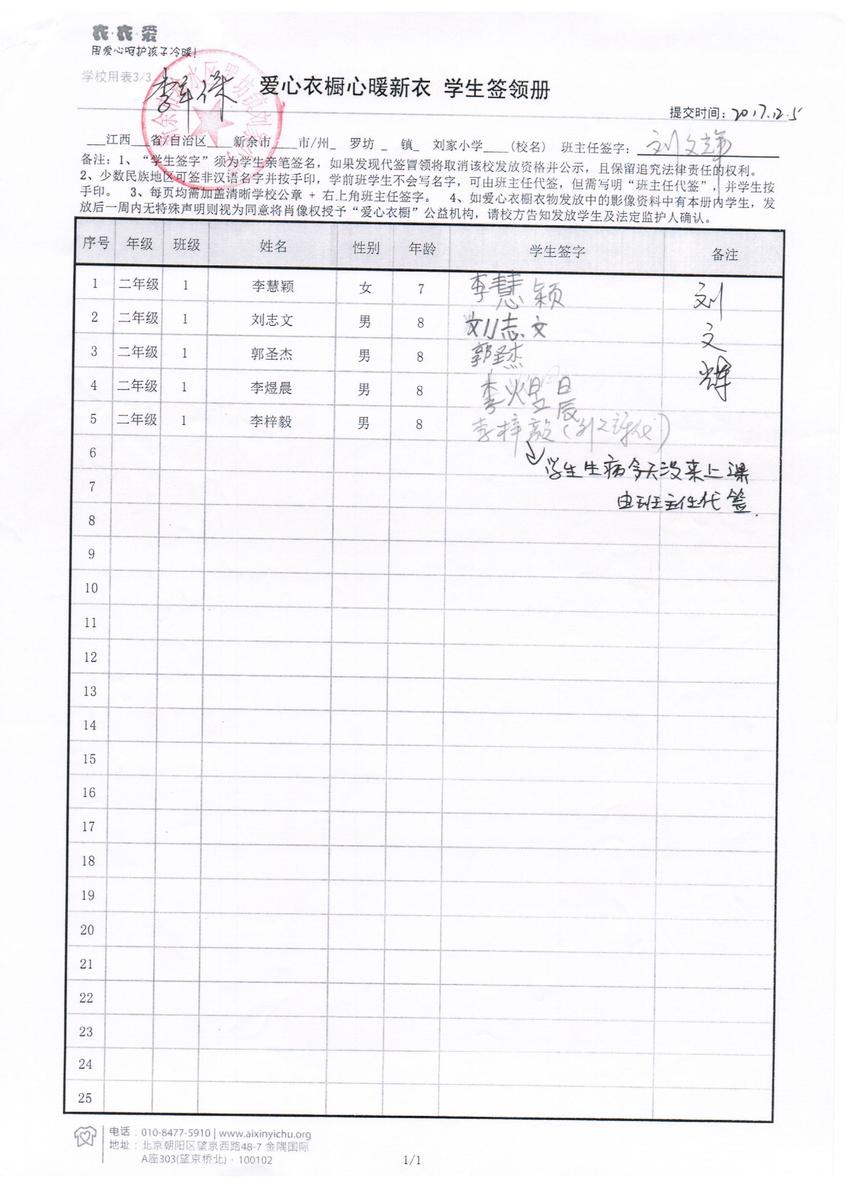 衣·衣·爱
用爱心呵护孩子冷暖!
学校用表3/3
爱心衣橱心暖新衣 学生签领册
提交时间: 2017.12.5
___江西___省/自治区____新余市____市/州_ 罗坊 _ 镇_ 刘家小学____(校名) 班主任签字: 刘文辉
备注: 1、“学生签字”须为学生亲笔签名, 如果发现代签冒领将取消该校发放资格并公示, 且保留追究法律责任的权利。
2、少数民族地区可签非汉语名字并按手印, 学前班学生不会写名字, 可由班主任代签, 但需写明“班主任代签”, 并学生按
手印。 3、每页均需加盖清晰学校公章 + 右上角班主任签字。 4、如爱心衣橱衣物发放中的影像资料中有本册内学生, 发
放后一周内无特殊声明则视为同意将肖像权授予“爱心衣橱”公益机构, 请校方告知发放学生及法定监护人确认。
序号 年级 班级 姓名 性别 年龄 学生签字 备注
1 二年级 1 李慧颖 女 7 李慧颖 刘
2 二年级 1 刘志文 男 8 刘志文 文
3 二年级 1 郭圣杰 男 8 郭圣杰 辉
4 二年级 1 李煜晨 男 8 李煜晨
5 二年级 1 李梓毅 男 8 李梓毅
6 学生生病今天没来上课
7 由班主任代签.
8
9
10
11
12
13
14
15
16
17
18
19
20
21
22
23
24
25
电话 : 010-8477-5910 | www.aixinyichu.org
地址 : 北京朝阳区望京西路48-7 金隅国际
A座303(望京桥北) · 100102
1/1